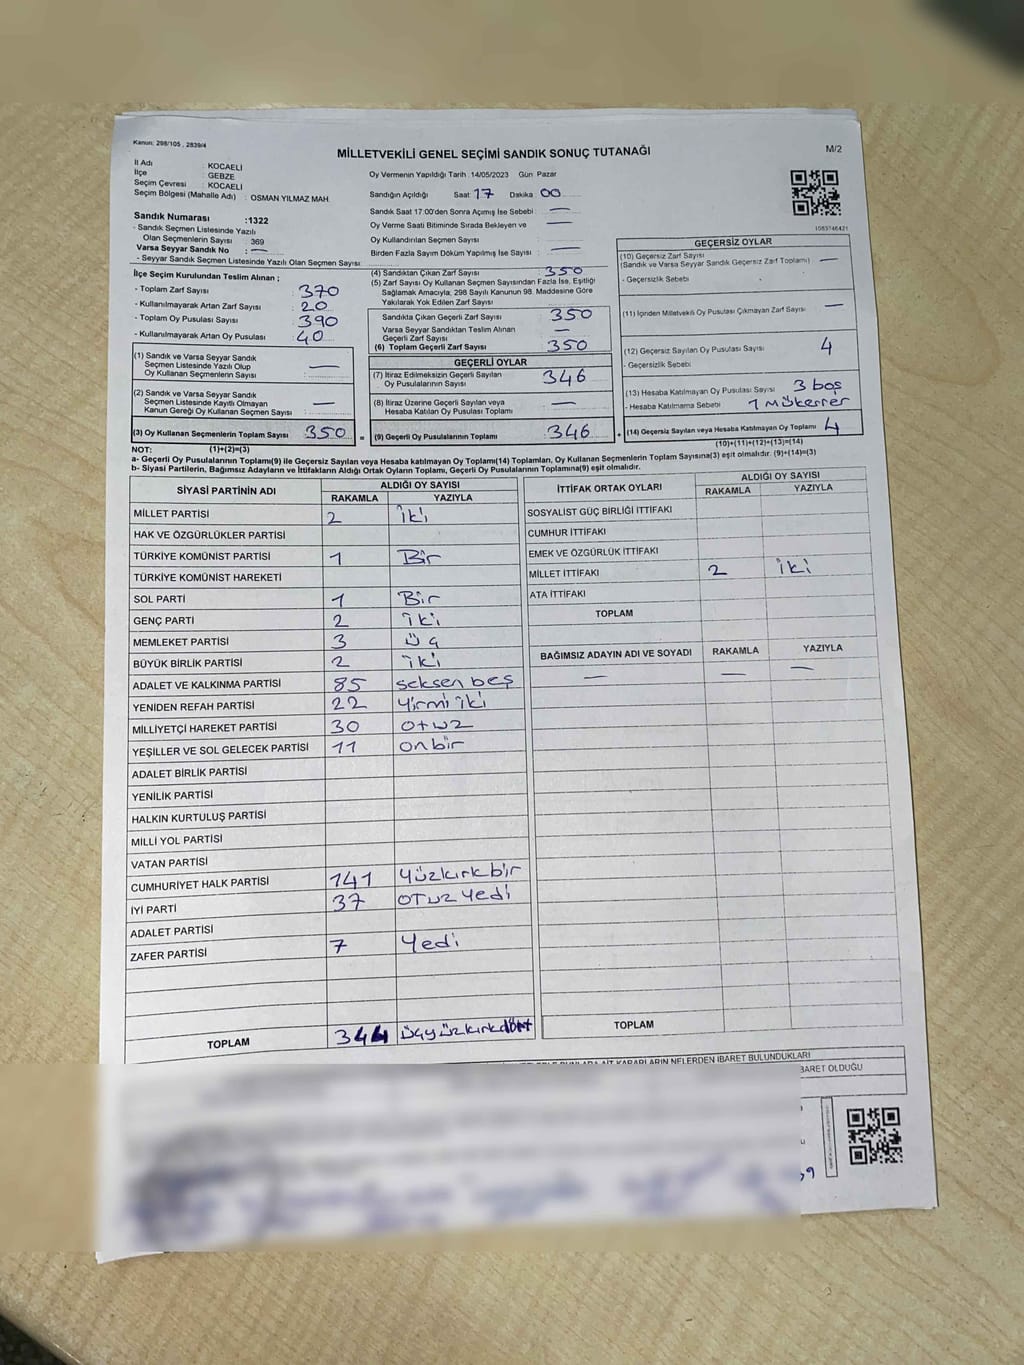 Kanun: 298/105 , 2839/4
MİLLETVEKİLİ GENEL SEÇİMİ SANDIK SONUÇ TUTANAĞI
M/2
İl Adı : KOCAELİ
İlçe : GEBZE
Seçim Çevresi : KOCAELİ
Seçim Bölgesi (Mahalle Adı) : OSMAN YILMAZ MAH.
Sandık Numarası :1322
- Sandık Seçmen Listesinde Yazılı
Olan Seçmenlerin Sayısı : 369
Varsa Seyyar Sandık No : —
- Seyyar Sandık Seçmen Listesinde Yazılı Olan Seçmen Sayısı:
Oy Vermenin Yapıldığı Tarih :14/05/2023 Gün Pazar
Sandığın Açıldığı Saat 17 Dakika 00
Sandık Saat 17:00'den Sonra Açımış İse Sebebi : —
Oy Verme Saati Bitiminde Sırada Bekleyen ve —
Oy Kullandırılan Seçmen Sayısı
Birden Fazla Sayım Döküm Yapılmış İse Sayısı : —
1083346421
İlçe Seçim Kurulundan Teslim Alınan ;
- Toplam Zarf Sayısı : 370
- Kullanılmayarak Artan Zarf Sayısı : 20
- Toplam Oy Pusulası Sayısı : 390
- Kullanılmayarak Artan Oy Pusulası : 40
(1) Sandık ve Varsa Seyyar Sandık
Seçmen Listesinde Yazılı Olup
Oy Kullanan Seçmenlerin Sayısı : —
(2) Sandık ve Varsa Seyyar Sandık
Seçmen Listesinde Kayıtlı Olmayan
Kanun Gereği Oy Kullanan Seçmen Sayısı : —
(3) Oy Kullanan Seçmenlerin Toplam Sayısı : 350
(1)+(2)=(3)
(4) Sandıktan Çıkan Zarf Sayısı : 350
(5) Zarf Sayısı Oy Kullanan Seçmen Sayısından Fazla İse, Eşitliği
Sağlamak Amacıyla, 298 Sayılı Kanunun 98. Maddesine Göre
Yakılarak Yok Edilen Zarf Sayısı :
Sandıkta Çıkan Geçerli Zarf Sayısı : 350
Varsa Seyyar Sandıktan Teslim Alınan
Geçerli Zarf Sayısı : —
(6) Toplam Geçerli Zarf Sayısı : 350
=
GEÇERLİ OYLAR
(7) İtiraz Edilmeksizin Geçerli Sayılan
Oy Pusulalarının Sayısı : 346
(8) İtiraz Üzerine Geçerli Sayılan veya
Hesaba Katılan Oy Pusulası Toplamı : —
(9) Geçerli Oy Pusulalarının Toplamı : 346
+
GEÇERSİZ OYLAR
(10) Geçersiz Zarf Sayısı
(Sandık ve Varsa Seyyar Sandık Geçersiz Zarf Toplamı) : —
- Geçersizlik Sebebi :
(11) İçinden Milletvekili Oy Pusulası Çıkmayan Zarf Sayısı : —
(12) Geçersiz Sayılan Oy Pusulası Sayısı : 4
- Geçersizlik Sebebi :
(13) Hesaba Katılmayan Oy Pusulası Sayısı : 3 boş
- Hesaba Katılmama Sebebi : 1 Mükerrer
(14) Geçersiz Sayılan veya Hesaba Katılmayan Oy Toplamı : 4
(10)+(11)+(12)+(13)=(14)
NOT:
a- Geçerli Oy Pusulalarının Toplamı(9) ile Geçersiz Sayılan veya Hesaba katılmayan Oy Toplamı(14) Toplamları, Oy Kullanan Seçmenlerin Toplam Sayısına(3) eşit olmalıdır. (9)+(14)=(3)
b- Siyasi Partilerin, Bağımsız Adayların ve İttifakların Aldığı Ortak Oyların Toplamı, Geçerli Oy Pusulalarının Toplamına(9) eşit olmalıdır.
SİYASİ PARTİNİN ADI ALDIĞI OY SAYISI
RAKAMLA YAZIYLA
MİLLET PARTİSİ 2 iki
HAK VE ÖZGÜRLÜKLER PARTİSİ
TÜRKİYE KOMÜNİST PARTİSİ 1 Bir
TÜRKİYE KOMÜNİST HAREKETİ
SOL PARTİ 1 Bir
GENÇ PARTİ 2 iki
MEMLEKET PARTİSİ 3 üç
BÜYÜK BİRLİK PARTİSİ 2 iki
ADALET VE KALKINMA PARTİSİ 85 seksen beş
YENİDEN REFAH PARTİSİ 22 Yirmi iki
MİLLİYETÇİ HAREKET PARTİSİ 30 otuz
YEŞİLLER VE SOL GELECEK PARTİSİ 11 onbir
ADALET BİRLİK PARTİSİ
YENİLİK PARTİSİ
HALKIN KURTULUŞ PARTİSİ
MİLLİ YOL PARTİSİ
VATAN PARTİSİ
CUMHURİYET HALK PARTİSİ 141 Yüzkırkbir
İYİ PARTİ 37 otuz yedi
ADALET PARTİSİ
ZAFER PARTİSİ 7 Yedi
TOPLAM 344 üçyüzkırkdört
İTTİFAK ORTAK OYLARI ALDIĞI OY SAYISI
RAKAMLA YAZIYLA
SOSYALİST GÜÇ BİRLİĞİ İTTİFAKI
CUMHUR İTTİFAKI
EMEK VE ÖZGÜRLÜK İTTİFAKI
MİLLET İTTİFAKI 2 iki
ATA İTTİFAKI
TOPLAM
BAĞIMSIZ ADAYIN ADI VE SOYADI RAKAMLA YAZIYLA
— — —
TOPLAM
KARARLARIN NELERDEN İBARET BULUNDUKLARI
BARET OLDUĞU